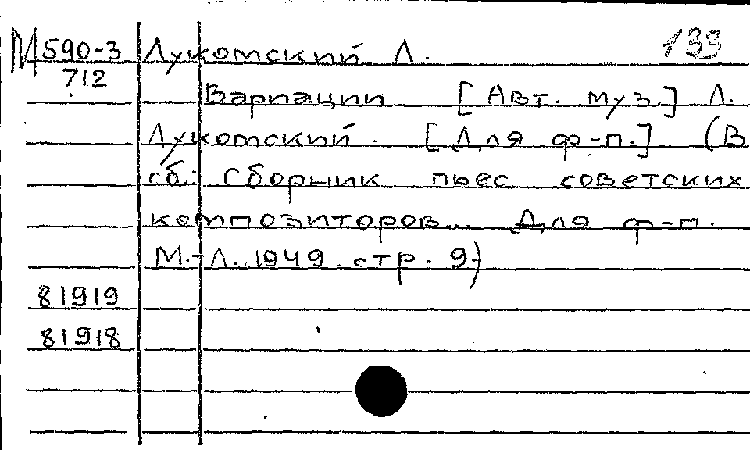 М 590-3 Лукомский Л. 133
712
Вариации [Авт. муз.] Л.
Лукомский. [Для ф-п.] (В
сб.: Сборник пьес советских
композиторов... Для ф-п.
М.-Л. 1949. стр. 9.)
81919
81918